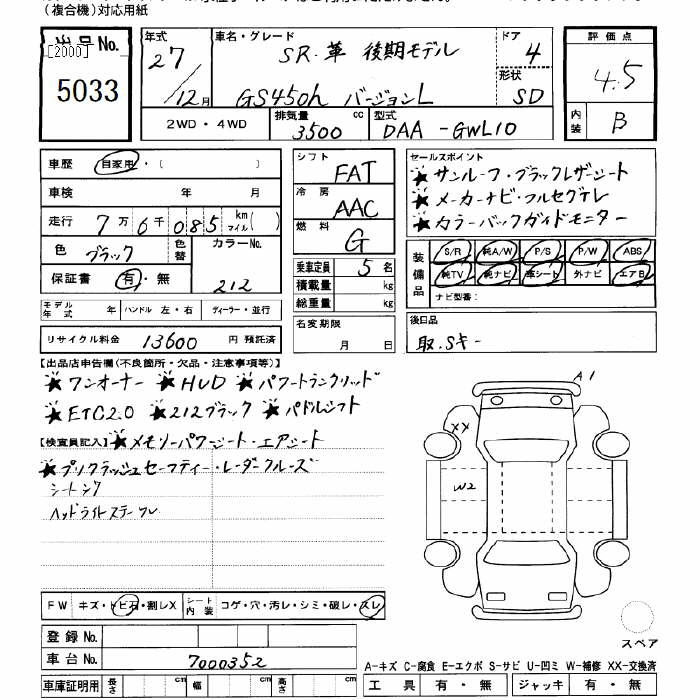 (複合機)対応用紙
出品No. [2000] 5033
年式 27/12月
車名・グレード SR・革 後期モデル
GS450h バージョンL
ドア 4
形状 SD
評価点 4.5
内装 B
2WD・4WD
排気量 3500 cc
型式 DAA-GWL10
車歴 自家用・( )
車検 年 月
走行 7万6千085 km マイル( )
色 ブラック 色替 カラーNo. 212
保証書 有・無
モデル年式 年 ハンドル 左・右 ディーラー・並行
リサイクル料金 13600 円 預託済
シフト FAT
冷房 AAC
燃料 G
乗車定員 5 名
積載量 kg
総重量 kg
名変期限 月 日
セールスポイント
★サンルーフ・ブラックレザーシート
★メーカーナビ・フルセグTV
★カラーバックガイドモニター
装備品 S/R 純A/W P/S P/W ABS
純TV 純ナビ 革シート 外ナビ エアB
ナビ型番:
後日品
取.Sキー
【出品店申告欄(不良箇所・欠品・注意事項等)】
★ワンオーナー ★HUD ★パワートランクリッド
★ETC2.0 ★212ブラック ★パドルシフト
【検査員記入】★メモリーパワーシート・エアシート
★プリクラッシュセーフティー・レーダークルーズ
シートシワ
ヘッドライトステーワレ
A1
XX
W2
FW キズ・トビ石・割レX シート内装 コゲ・穴・汚レ・シミ・破レ・スレ
スペア
登録No.
車台No. 7000352
A-キズ C-腐食 E-エクボ S-サビ U-凹ミ W-補修 XX-交換済
車庫証明用 長さ cm 幅 cm 高さ cm
工具 有・無 ジャッキ 有・無